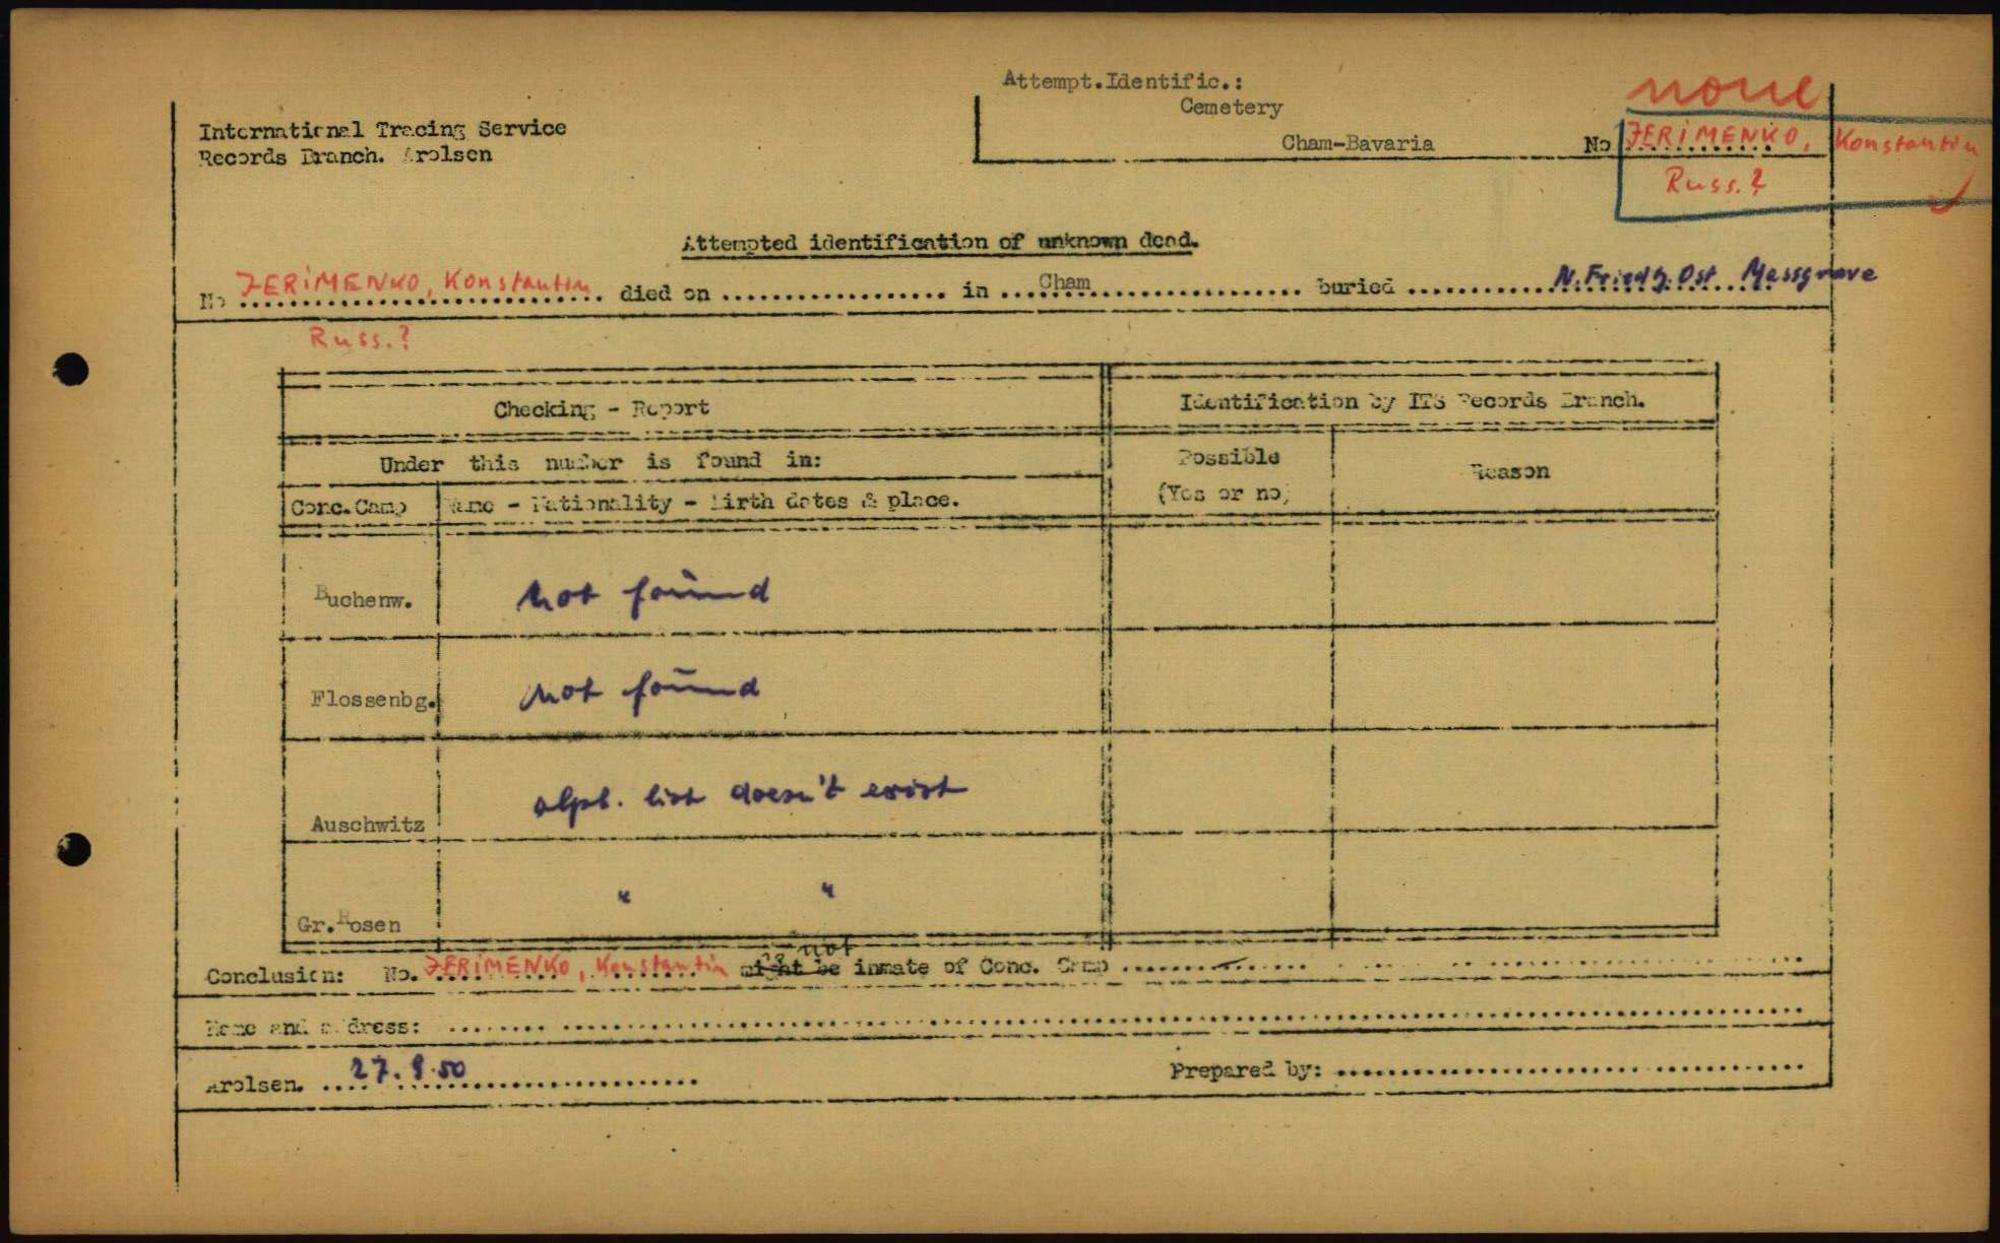 Attempt.Identific.:
Cemetery
Cham-Bavaria
none
No JERIMENKO, Konstantin
Russ.?
International Tracing Service
Records Branch. Arolsen
Attempted identification of unknown dead.
No JERIMENKO, Konstantin died on .................. in ...Cham..................... buried ............N.Friedh.Ost Massgrave
Russ.?
Checking - Report
Identification by ITS Records Branch.
Under this number is found in:
Possible
(Yes or no)
Reason
Conc.Camp
Name - Nationality - Birth dates & place.
Buchenw. not found
Flossenbg. not found
Auschwitz alph. list doesn't exist
Gr.Rosen " "
Conclusion: No. JERIMENKO, Konstantin might be is not inmate of Conc. Camp
Name and address:
Arolsen. 27. 9. 50
Prepared by: